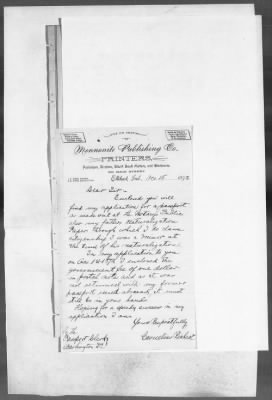 Mennonite Publishing Co.
PRINTERS,
Publishers, Binders, Blank Book Makers, and Stationers.
Elkhart, Ind., Dec. 15 189
Dear Sir:-
Enclosed you will
find my application for a passport
as made out at the Notary Public
also my fathers Naturalization
Paper through which I do claim
citizenship I was a minor at
the time of his naturalization.
In my application to you
on I enclosed the
government fee of one dollar
in postal note and as it was
not returned with my former
passport it must
still be in your hands.
Hoping for a speedy answer in my
application I am
Yours Respectfully
Cornelius
To The
Passport Clerk
Washington D.C.